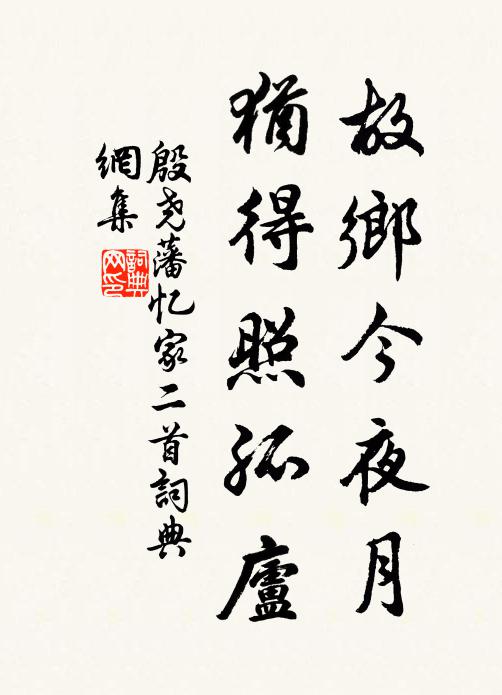 故鄉今夜月
猶得照孤廬
殷尧藩忆家二首詞典
網集
詞典
网印